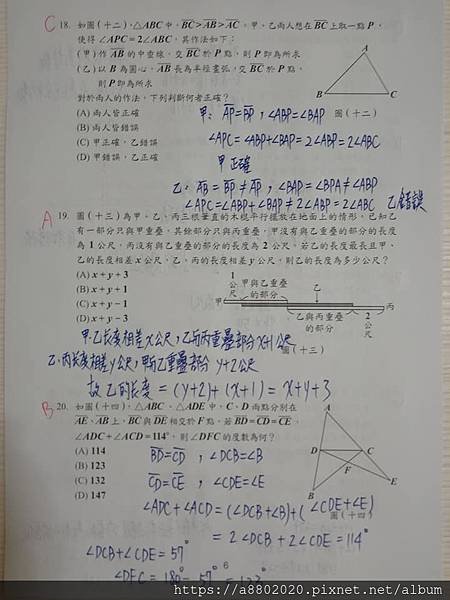 C 18. 如圖(十二),△ABC 中,BC>AB>AC。甲、乙兩人想在 BC 上取一點 P,
使得 ∠APC=2∠ABC,其作法如下:
(甲)作 AB 的中垂線,交 BC 於 P 點,則 P 即為所求
(乙)以 B 為圓心,AB 長為半徑畫弧,交 BC 於 P 點,
則 P 即為所求
對於兩人的作法,下列判斷何者正確?
(A) 兩人皆正確
(B) 兩人皆錯誤
(C) 甲正確,乙錯誤
(D) 甲錯誤,乙正確
A
B
C
圖(十二)
甲:AP=BP,∠ABP=∠BAP
∠APC=∠ABP+∠BAP=2∠ABP=2∠ABC
甲正確
乙:AB=BP≠AP,∠BAP=∠BPA≠∠ABP
∠APC=∠ABP+∠BAP≠2∠ABP=2∠ABC 乙錯誤
A 19. 圖(十三)為甲、乙、丙三根筆直的木棍平行擺放在地面上的情形。已知乙
有一部分只與甲重疊,其餘部分只與丙重疊,甲沒有與乙重疊的部分的長度
為 1 公尺,丙沒有與乙重疊的部分的長度為 2 公尺。若乙的長度最長且甲、
乙的長度相差 x 公尺,乙、丙的長度相差 y 公尺,則乙的長度為多少公尺?
(A) x+y+3
(B) x+y+1
(C) x+y-1
(D) x+y-3
1公尺
甲與乙重疊的部分
乙
甲
丙
乙與丙重疊的部分
2公尺
圖(十三)
甲.乙長度相差x公尺,乙與丙重疊部分x+1公尺
乙.丙長度相差y公尺,甲與乙重疊部分 y+2公尺
故乙的長度 = (y+2)+(x+1) = x+y+3
B 20. 如圖(十四),△ABC、△ADE 中,C、D 兩點分別在
AE、AB 上,BC 與 DE 相交於 F 點。若 BD=CD=CE,
∠ADC+∠ACD=114°,則∠DFC 的度數為何?
(A) 114
(B) 123
(C) 132
(D) 147
A
D
C
F
B
E
圖(十四)
BD=CD,∠DCB=∠B
CD=CE,∠CDE=∠E
∠ADC+∠ACD=(∠DCB+∠B)+(∠CDE+∠E)
= 2∠DCB+2∠CDE=114°
∠DCB+∠CDE=57°
6
∠DFC=180°-57°=123°
https://a8802020.pixnet.net/album